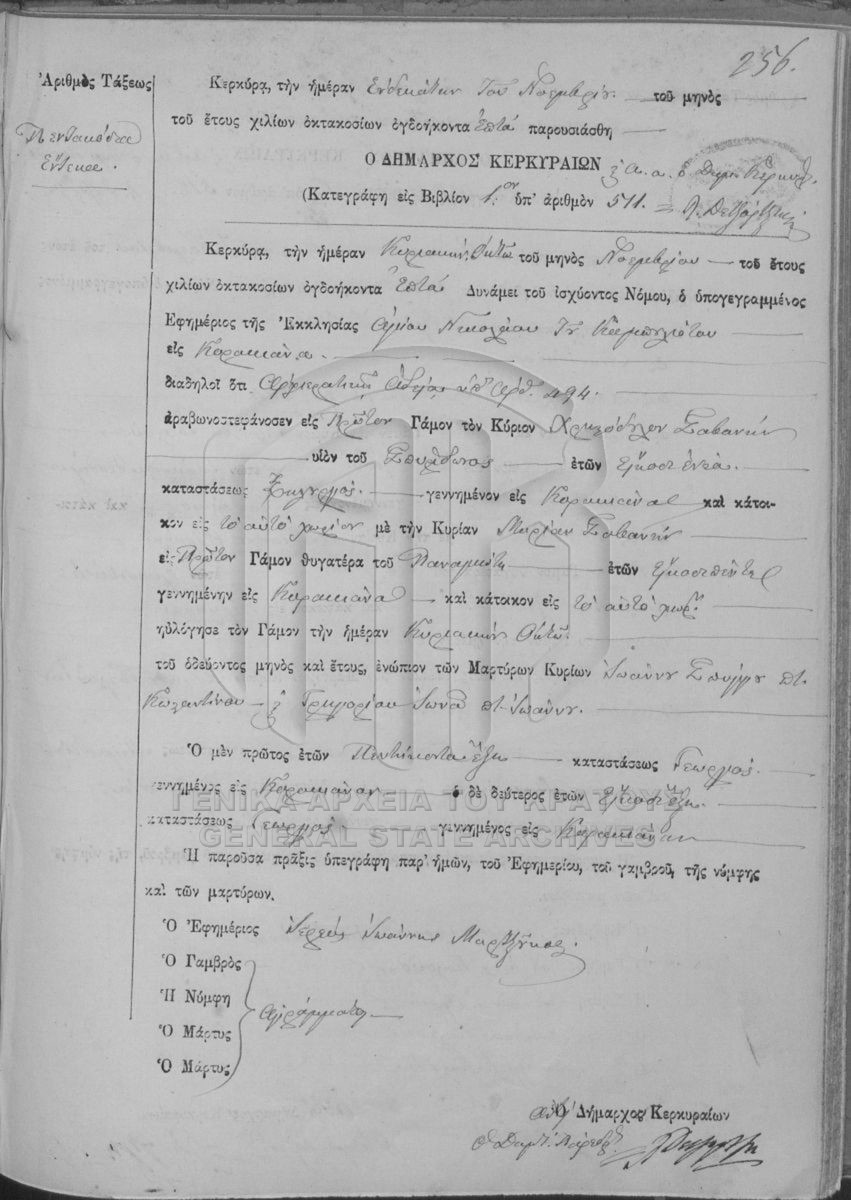 256.
Ἀριθμὸς Τάξεως
Πεντακόσια
Ἕνδεκα.
Κερκύρᾳ, τὴν ἡμέραν Ἑνδεκάτην τοῦ Νοεμβρίου τοῦ μηνὸς
τοῦ ἔτους χιλίων ὀκτακοσίων ὀγδοήκοντα Ἑπτά παρουσιάσθη
Ὁ ΔΗΜΑΡΧΟΣ ΚΕΡΚΥΡΑΙΩΝ
(Κατεγράφη εἰς Βιβλίον 1ον ὑπ' ἀριθμὸν 511.
Κερκύρᾳ, τὴν ἡμέραν Κυριακήν, Ὀκτὼ τοῦ μηνὸς Νοεμβρίου τοῦ ἔτους
χιλίων ὀκτακοσίων ὀγδοήκοντα Ἑπτά Δυνάμει τοῦ ἰσχύοντος Νόμου, ὁ ὑπογεγραμμένος
Ἐφημέριος τῆς Ἐκκλησίας Ἁγίου Νικολάου
εἰς Κορακιάνα.
διαδηλοῖ ὅτι Ἀρχιερατικῆς Ἀδείας ὑπ' ἀρθ. 494.
ἀραβωνοστεφάνοσεν εἰς Πρῶτον Γάμον τὸν Κύριον Χριστόδουλον Σαβανήν
υἱὸν τοῦ Σπυρίδωνος ἐτῶν εἴκοσι ἐννέα.
καταστάσεως γεννημένον εἰς Κορακιάνα καὶ κάτοι-
κον εἰς τὸ αὐτὸ χωρίον μὲ τὴν Κυρίαν Μαρίαν Σαβανήν
εἰς Πρῶτον Γάμον θυγατέρα τοῦ Παναγιώτη ἐτῶν εἴκοσι πέντε
γεννημένην εἰς Κορακιάνα καὶ κάτοικον εἰς τὸ αὐτὸ χωρ.
ηὐλόγησε τὸν Γάμον τὴν ἡμέραν Κυριακήν Ὀκτώ.
τοῦ ὁδεύοντος μηνὸς καὶ ἔτους, ἐνώπιον τῶν Μαρτύρων Κυρίων Ἰωάννου
Κωσταντίνου Γρηγορίου Ἰωνᾶ πτ. Ἰωάννου.
Ὁ μὲν πρῶτος ἐτῶν Πεντήκοντα ἕξ καταστάσεως Γεωργός.
γεννημένος εἰς Κορακιάναν ὁ δὲ δεύτερος ἐτῶν εἴκοσι ἕξ.
καταστάσεως Γεωργός γεννημένος εἰς Κορακιάναν
Ἡ παροῦσα πρᾶξις ὑπεγράφη παρ' ἡμῶν, τοῦ Ἐφημερίου, τοῦ γαμβροῦ, τῆς νύμφης
καὶ τῶν μαρτύρων.
Ὁ Ἐφημέριος Ἱερεύς Ἰωάννης
Ὁ Γαμβρὸς
Ἡ Νύμφη
Ἀγράμματοι
Ὁ Μάρτυς
Ὁ Μάρτυς
Ὁ Δήμαρχος Κερκυραίων
ΓΕΝΙΚΑ ΑΡΧΕΙΑ ΤΟΥ ΚΡΑΤΟΥΣ
GENERAL STATE ARCHIVES